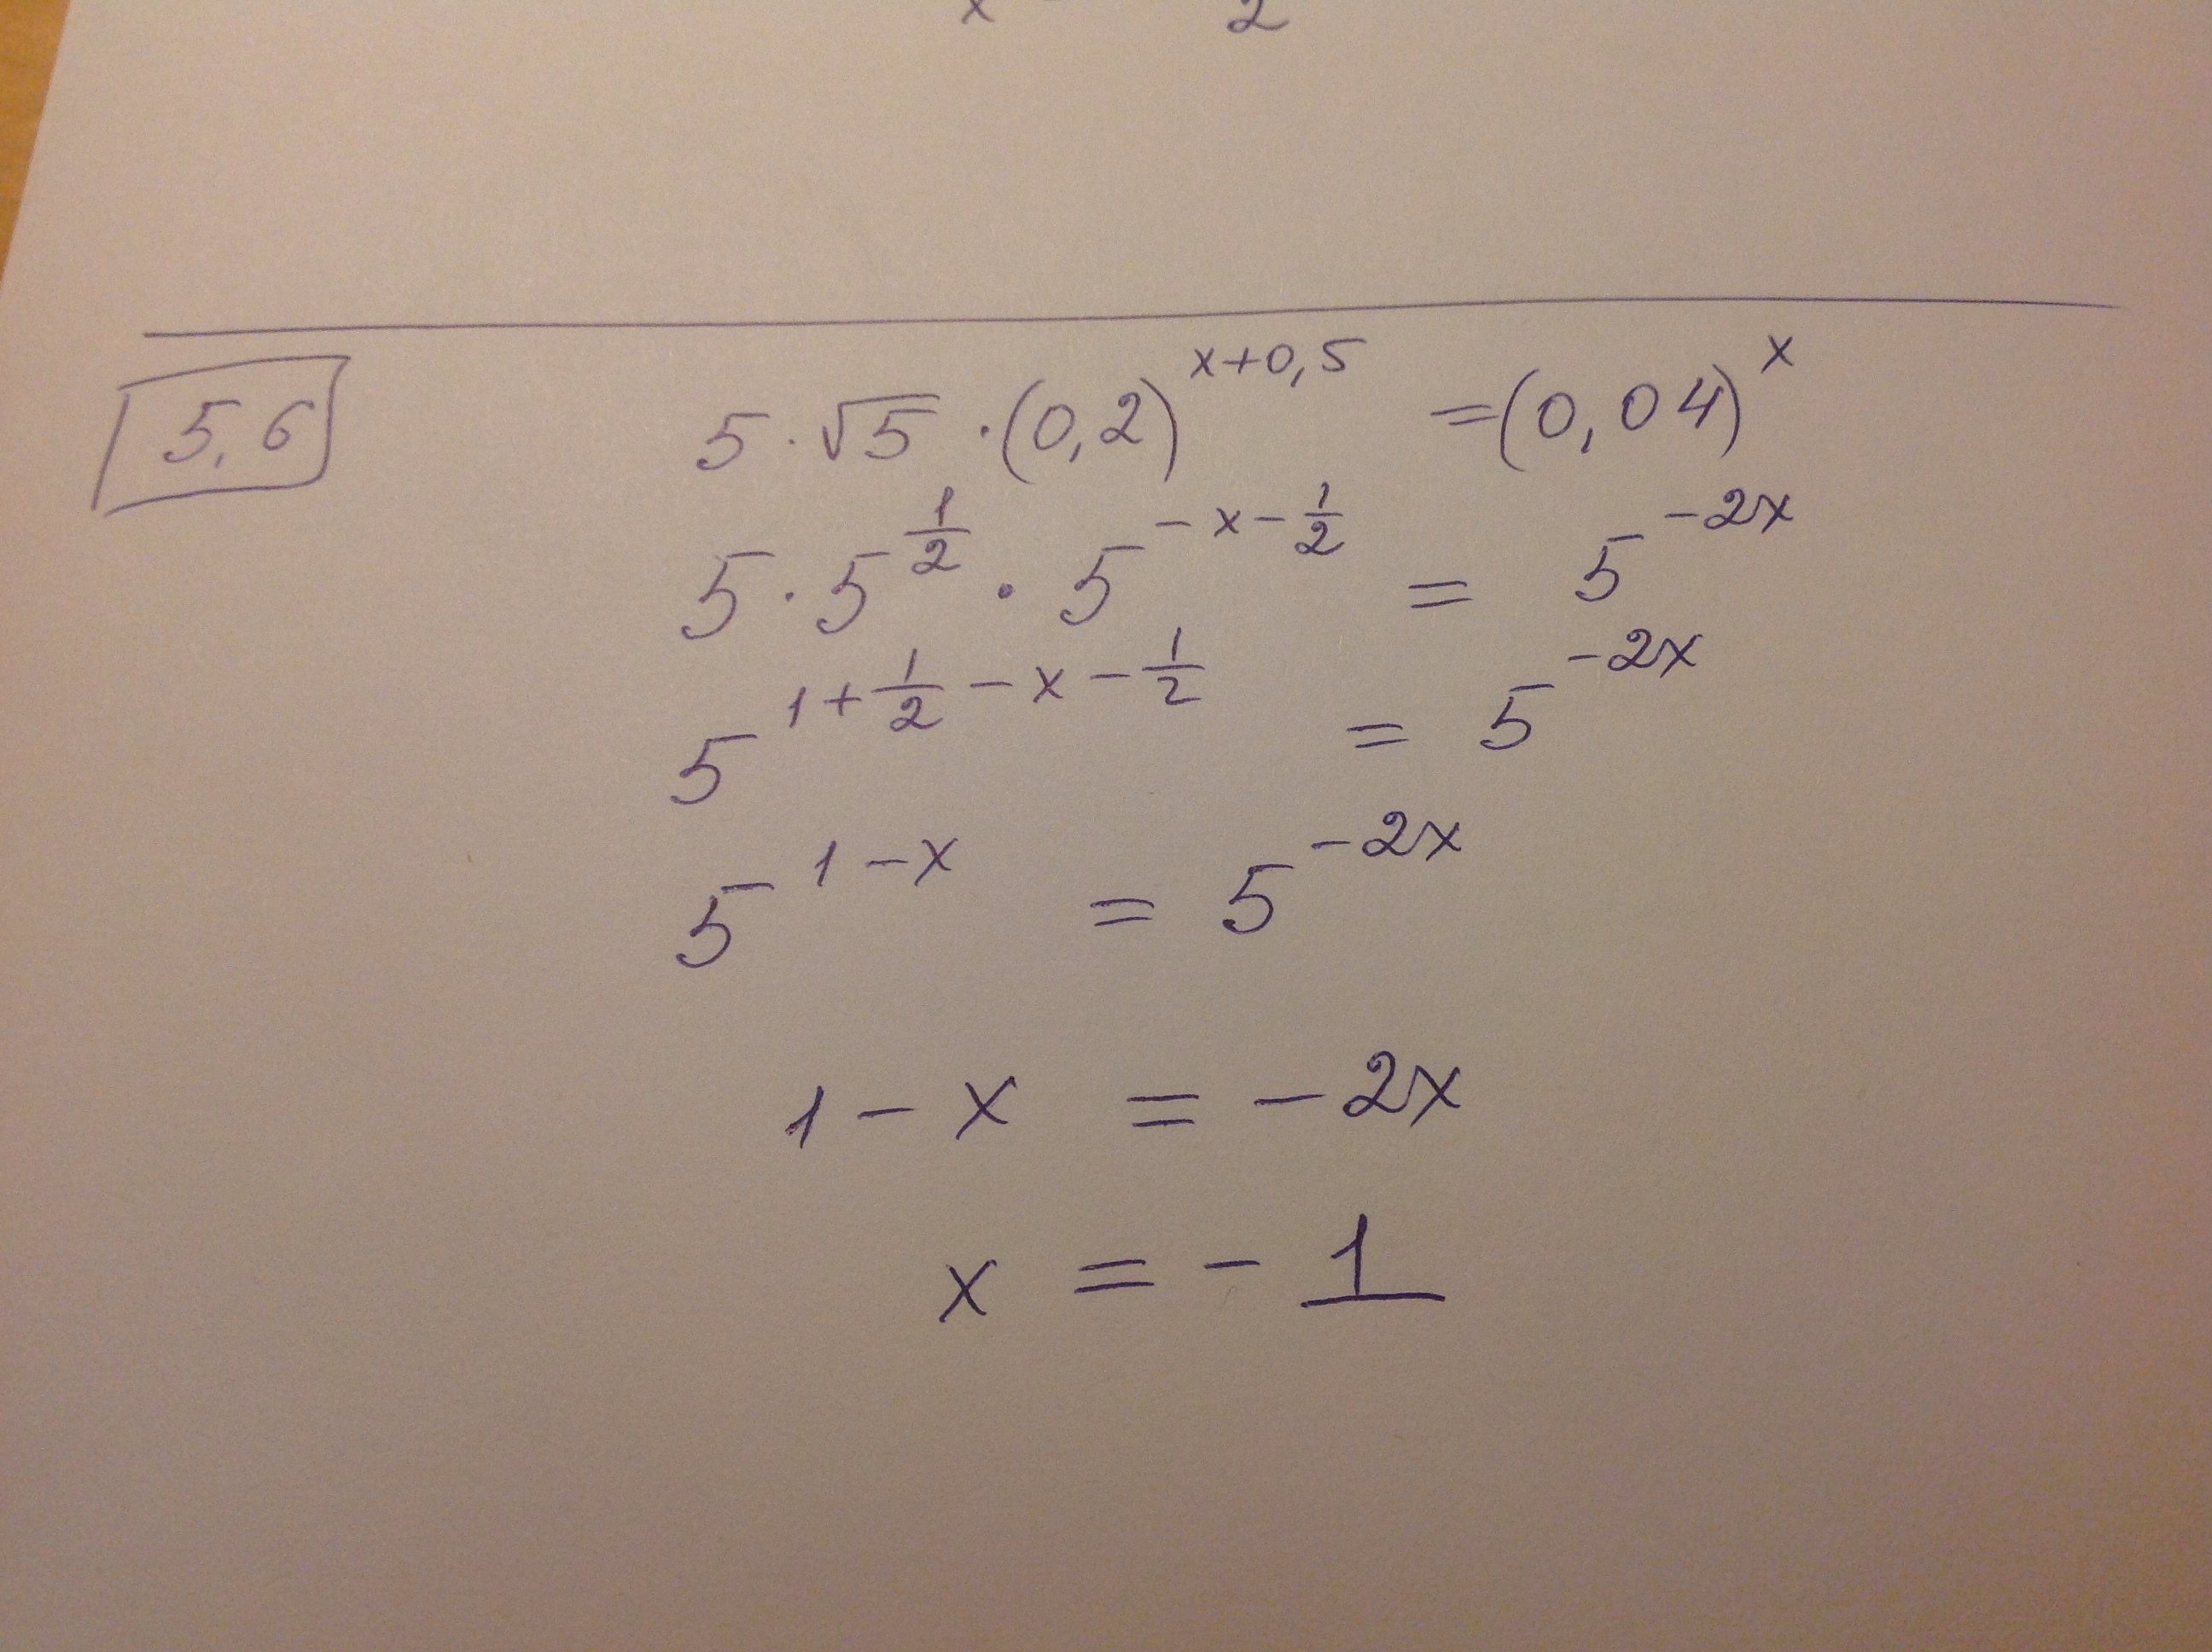 x 2
5,6
5 · √5 · (0,2)^(x+0,5) = (0,04)^x
5 · 5^(1/2) · 5^(-x-1/2) = 5^(-2x)
5^(1+1/2-x-1/2) = 5^(-2x)
5^(1-x) = 5^(-2x)
1 - x = -2x
x = - 1